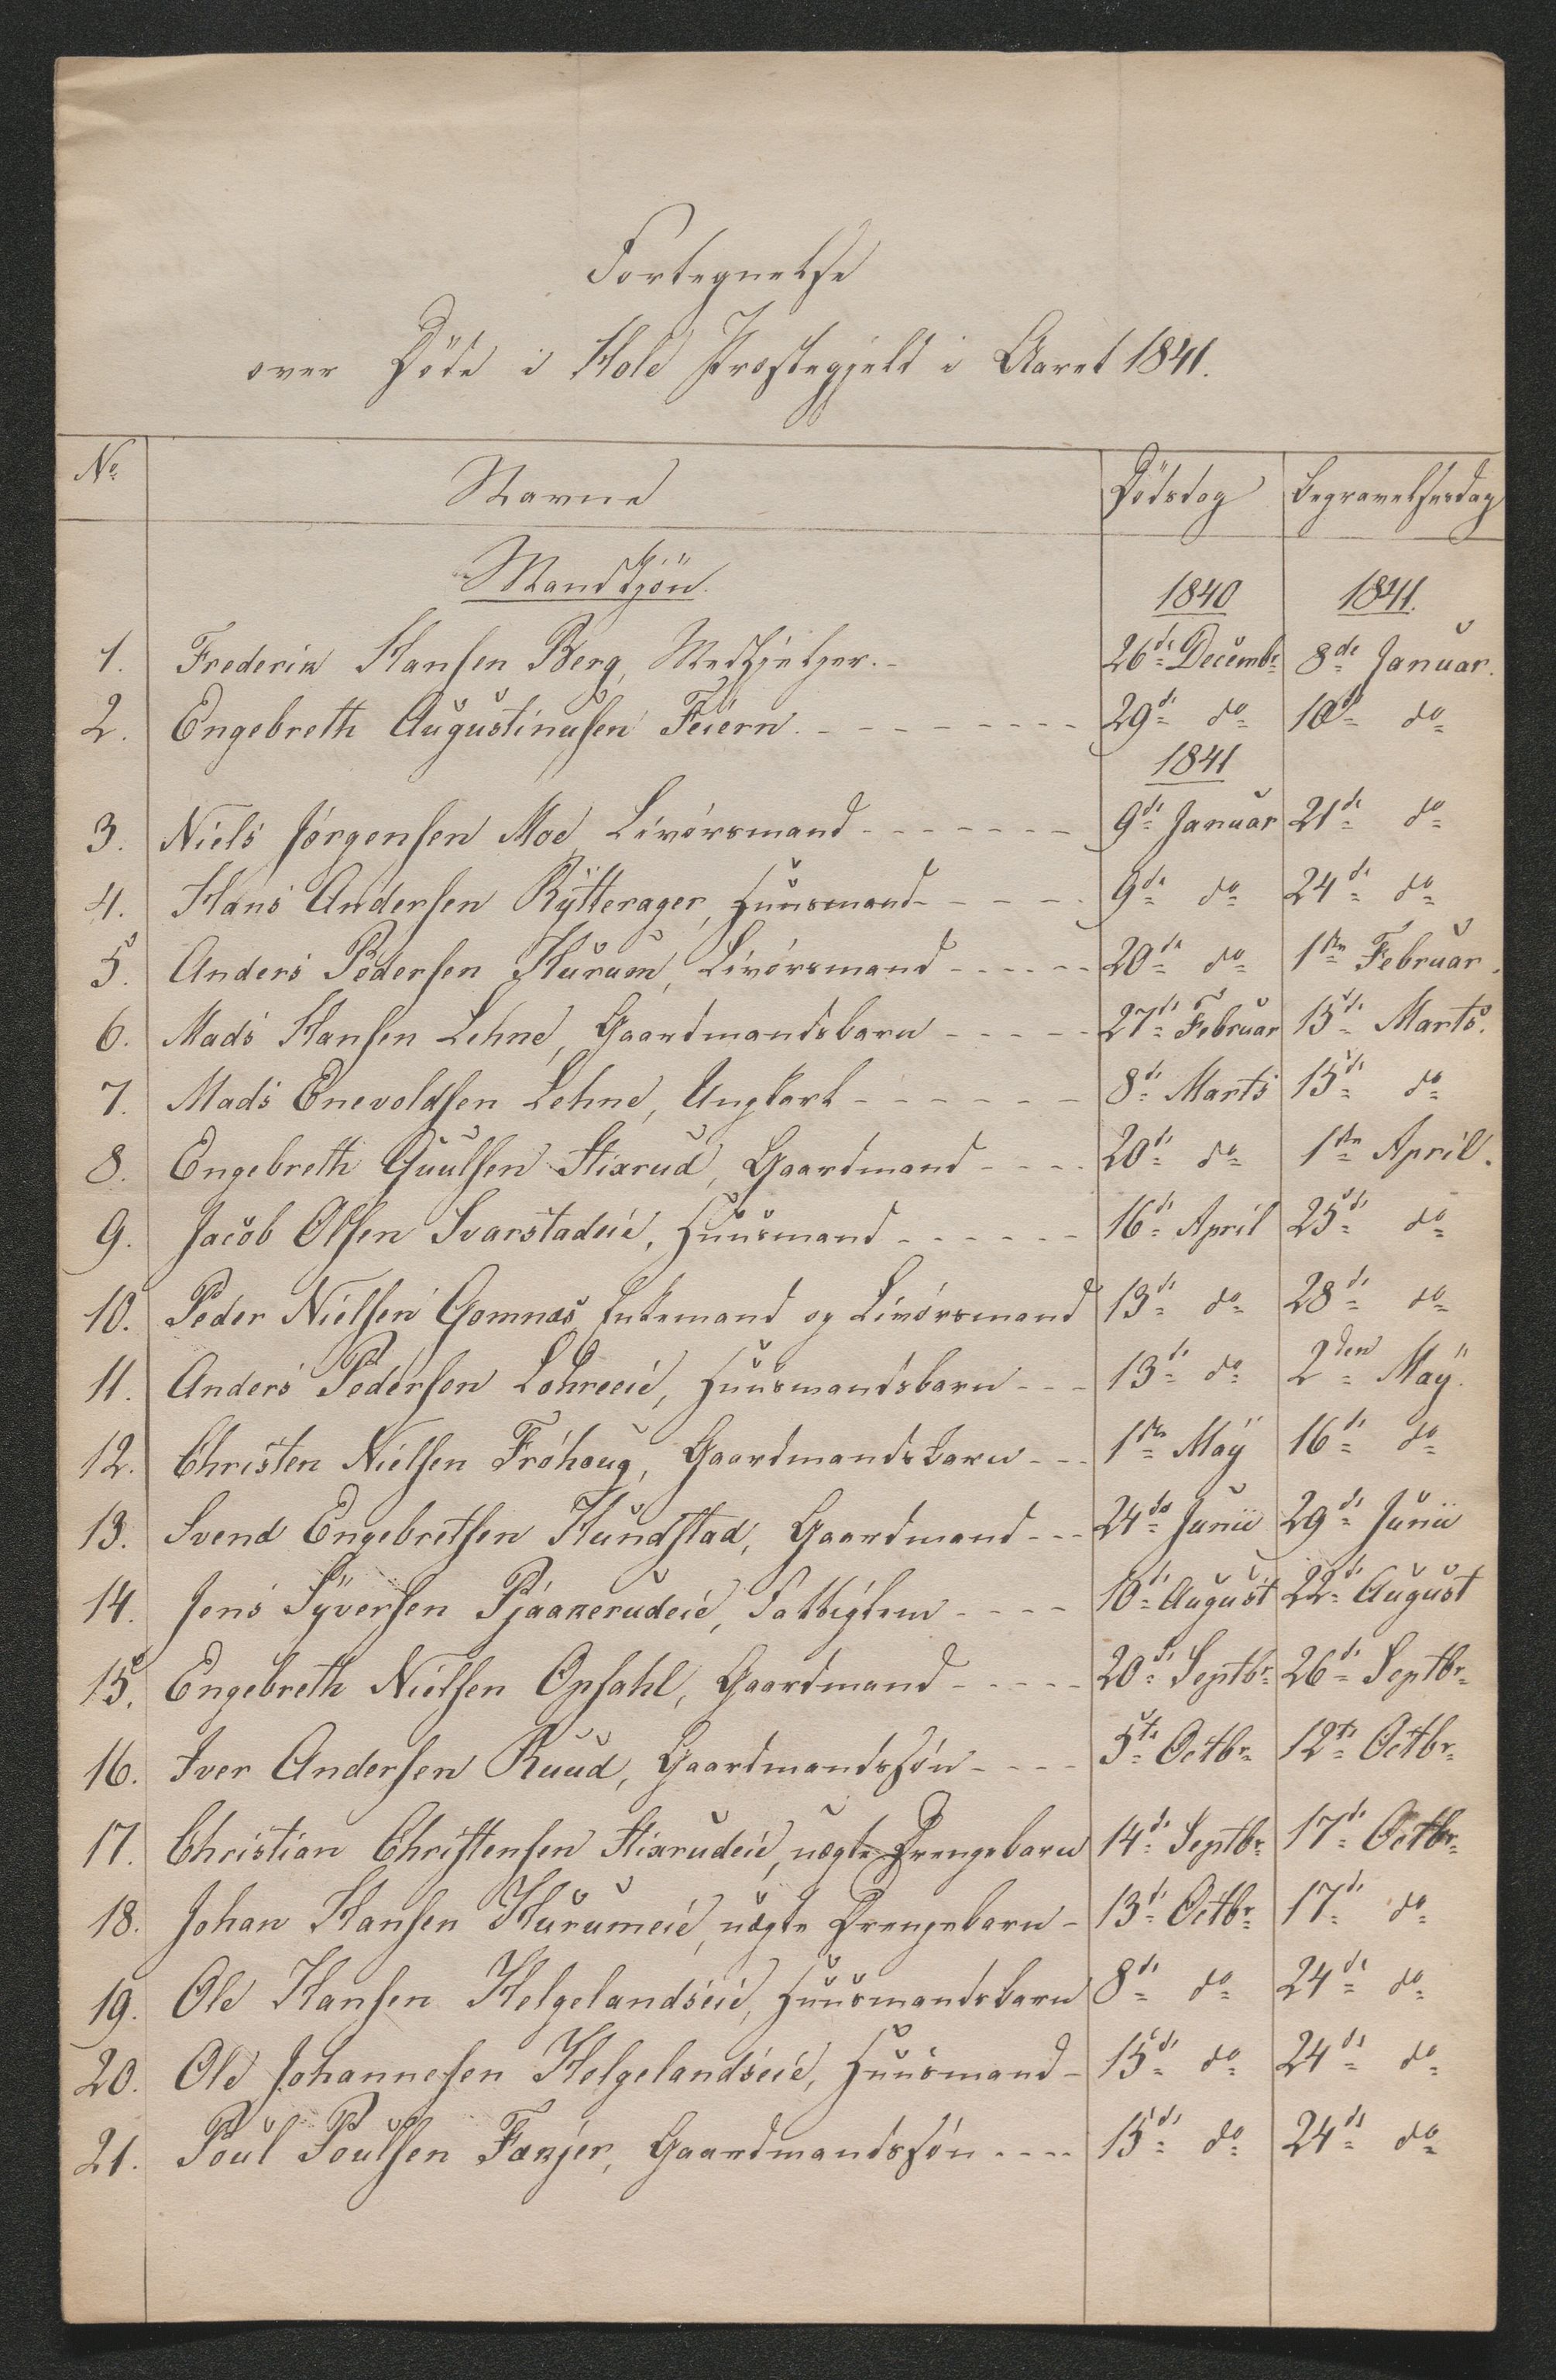 Fortegnelse
over Döde i Hole Præstegjeld i Aaret 1841.
No Navne Dödsdag Begravelsesdag
Mandkjön. 1840 1841.
1. Frederik Hansen Berg, Medhjelper. 26de Decembr 8de Januar.
2. Engebreth Augustinusen Feiern 29de do 10de do
1841
3. Niels Jörgensen Moe Livörsmand 9de Januar 21de do
4. Hans Andersen Rytterager, Huusmand 9de do 24de do
5. Anders Pedersen Hurum, Livörsmand 20de do 1ste Februar.
6. Mads Hansen Lehne, Gaardmandsbarn 27de Februar 15de Marts.
7. Mads Enevoldsen Lehne, Ungkarl 8de Marts 15de do
8. Engebreth Guulsen Stixrud, Gaardmand 20de do 1ste April.
9. Jacob Olsen Svarstadeie, Huusmand 16de April 25de do
10. Peder Nielsen Gomnæs Enkemand og Livörsmand 13de do 28de do
11. Anders Pedersen Lohreeie, Huusmandsbarn 13de do 2den May.
12. Christen Nielsen Fröhoug, Gaardmandsbarn 1ste May 16de do
13. Svend Engebretsen Hundstad, Gaardmand 24de Junii 29de Junii
14. Jens Syversen Pjaakerudeie, Fattiglem 10de August 22de August
15. Engebreth Nielsen Opsahl, Gaardmand 20de Septbr 26de Septbr
16. Iver Andersen Ruud, Gaardmandssön 5te Octbr 12te Octbr
17. Christian Christensen Stixrudeie, uægte Drengebarn 14de Septbr 17de Octbr
18. Johan Hansen Hurumeie, uægte Drengebarn 13de Octbr 17de do
19. Ole Hansen Helgelandseie, Huusmandsbarn 8de do 24de do
20. Ole Johannesen Helgelandseie, Huusmand 15de do 24de do
21. Poul Poulsen Fækjer, Gaardmandssön 15de do 24de do